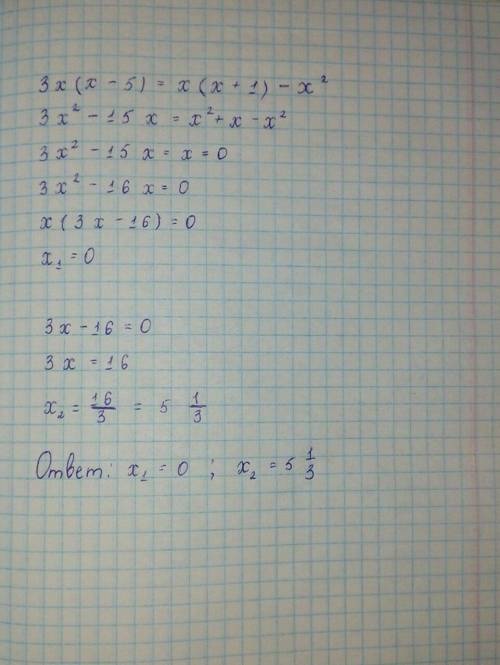 3x(x - 5) = x(x + 1) - x²
3x² - 15x = x² + x - x²
3x² - 15x = x = 0
3x² - 16x = 0
x(3x - 16) = 0
x₁ = 0
3x - 16 = 0
3x = 16
x₂ = 16/3 = 5 1/3
Ответ: x₁ = 0 ; x₂ = 5 1/3